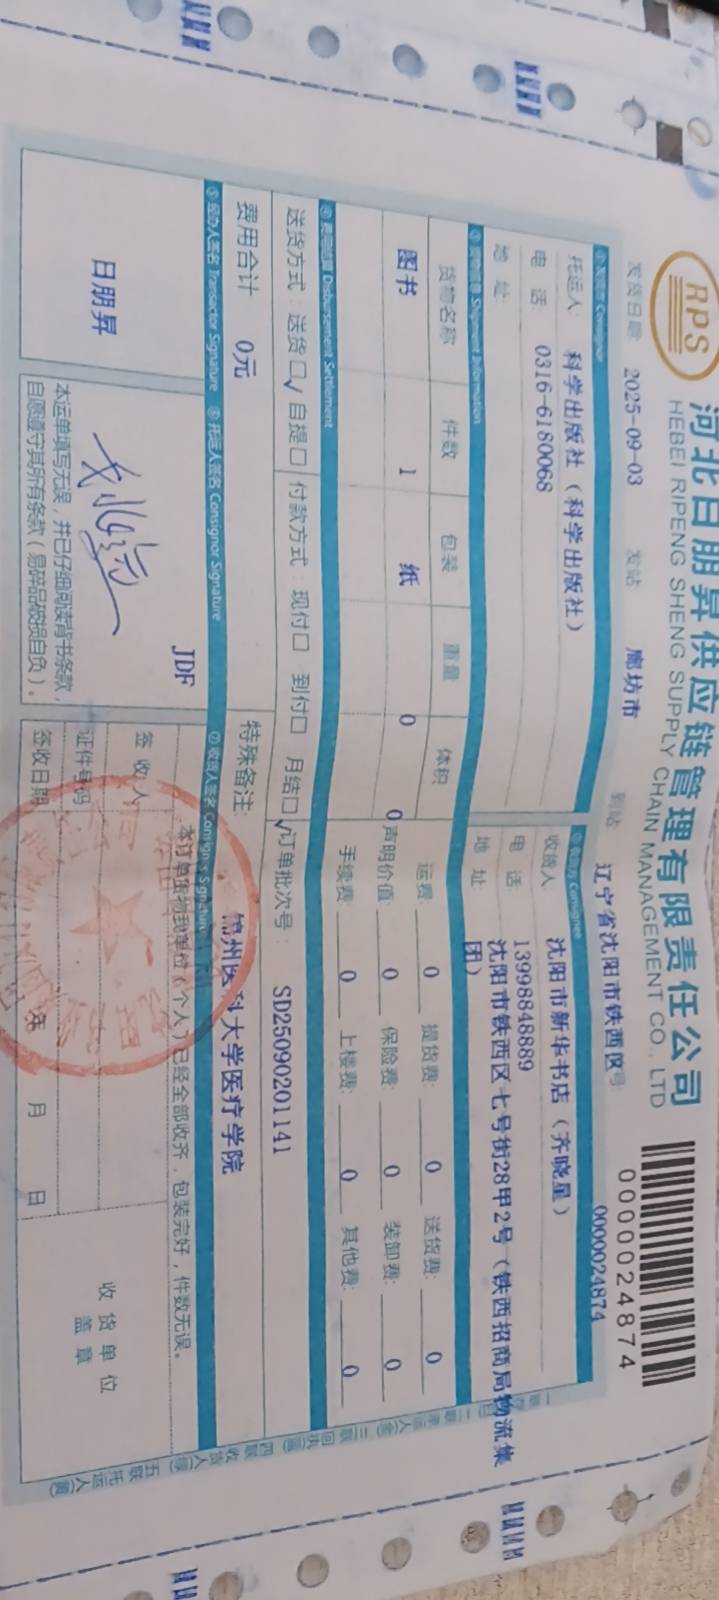 RPS
河北日朋昇供应链管理有限责任公司
HEBEI RIPENG SHENG SUPPLY CHAIN MANAGEMENT CO., LTD
0000024874
发货日期 2025-09-03 发站 廊坊市 到站 辽宁省沈阳市铁西区 号: 0000024874
① 发货方 Consignor
托运人: 科学出版社（科学出版社）
电 话: 0316-6180068
地 址:
② 收货方 Consignee
收货人: 沈阳市新华书店（齐晓星）
电 话 13998848889
地 址 沈阳市铁西区七号街28甲2号（铁西招商局物流集团）
③ 货物信息 Shipment Information
货物名称 件数 包装 重量 体积
图书 1 纸 0 0
运费: 0 提货费: 0 送货费: 0
声明价值: 0 保险费: 0 装卸费: 0
手续费: 0 上楼费: 0 其他费: 0
④ 费用结算 Disbursement Settlement
送货方式: 送货☐√ 自提☐ 付款方式: 现付☐ 到付☐ 月结☐√
订单批次号: SD25090201141
费用合计 0元
特殊备注: 锦州医科大学医疗学院
⑤ 经办人签名 Transactor Signature ⑥ 托运人签名 Consignor Signature ⑦ 收货人签名 Consignee Signature
日朋昇
JDF
本运单填写无误，并已仔细阅读背书条款，
自愿遵守其所有条款（易碎品破损自负）。
本订单货物我单位（个人）已经全部收齐，包装完好，件数无误。
签 收 人
证件号码
签收日期 年 月 日
收 货 单 位
盖 章